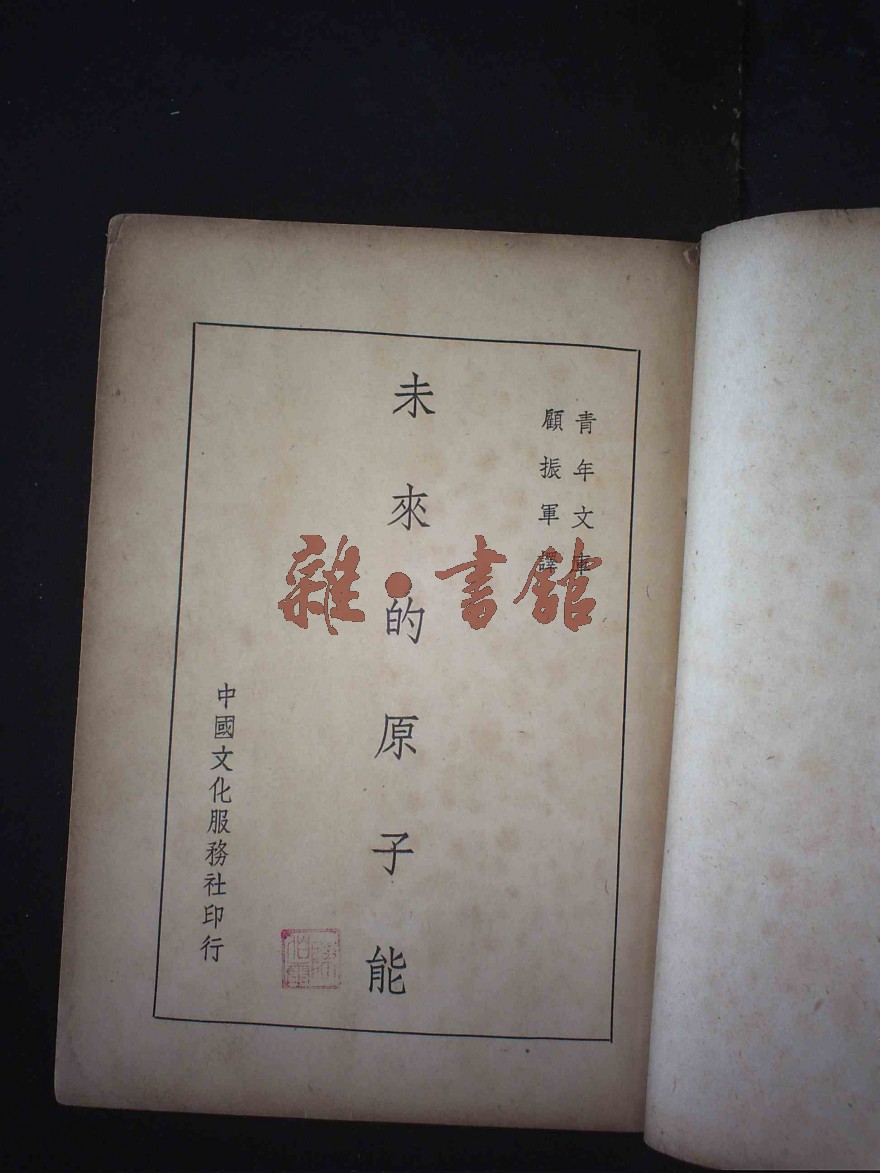 青年文庫
顧振軍譯
未來的原子能
中國文化服務社印行
雜·書館